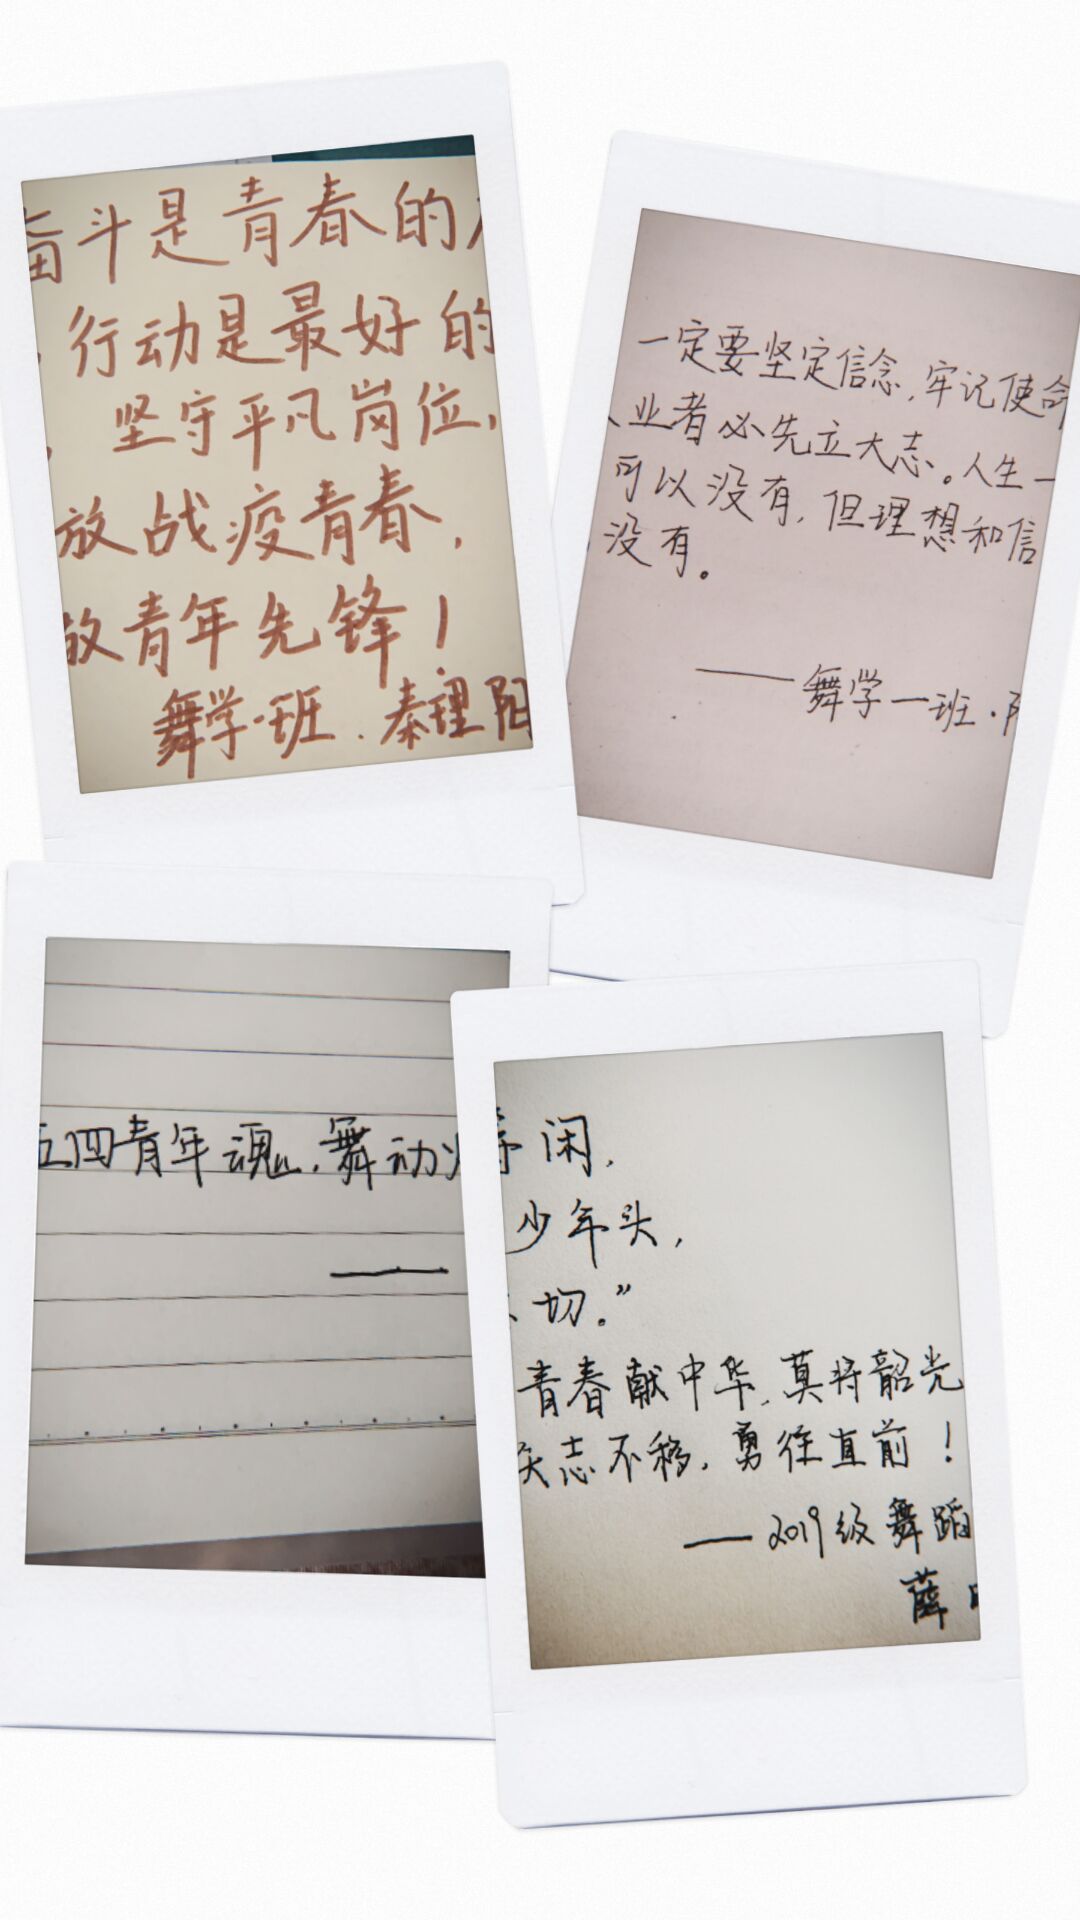 奋斗是青春的
行动是最好的
坚守平凡岗位,
放战疫青春,
放青年先锋!
舞学一班.秦理阳
一定要坚定信念,牢记使命
业者必先立大志。人生一
可以没有,但理想和信
没有。
——舞学一班.
五四青年魂,舞动
等闲,
少年头,
切。”
青春献中华,莫将韶光
矢志不移,勇往直前!
——2019级舞蹈
薛